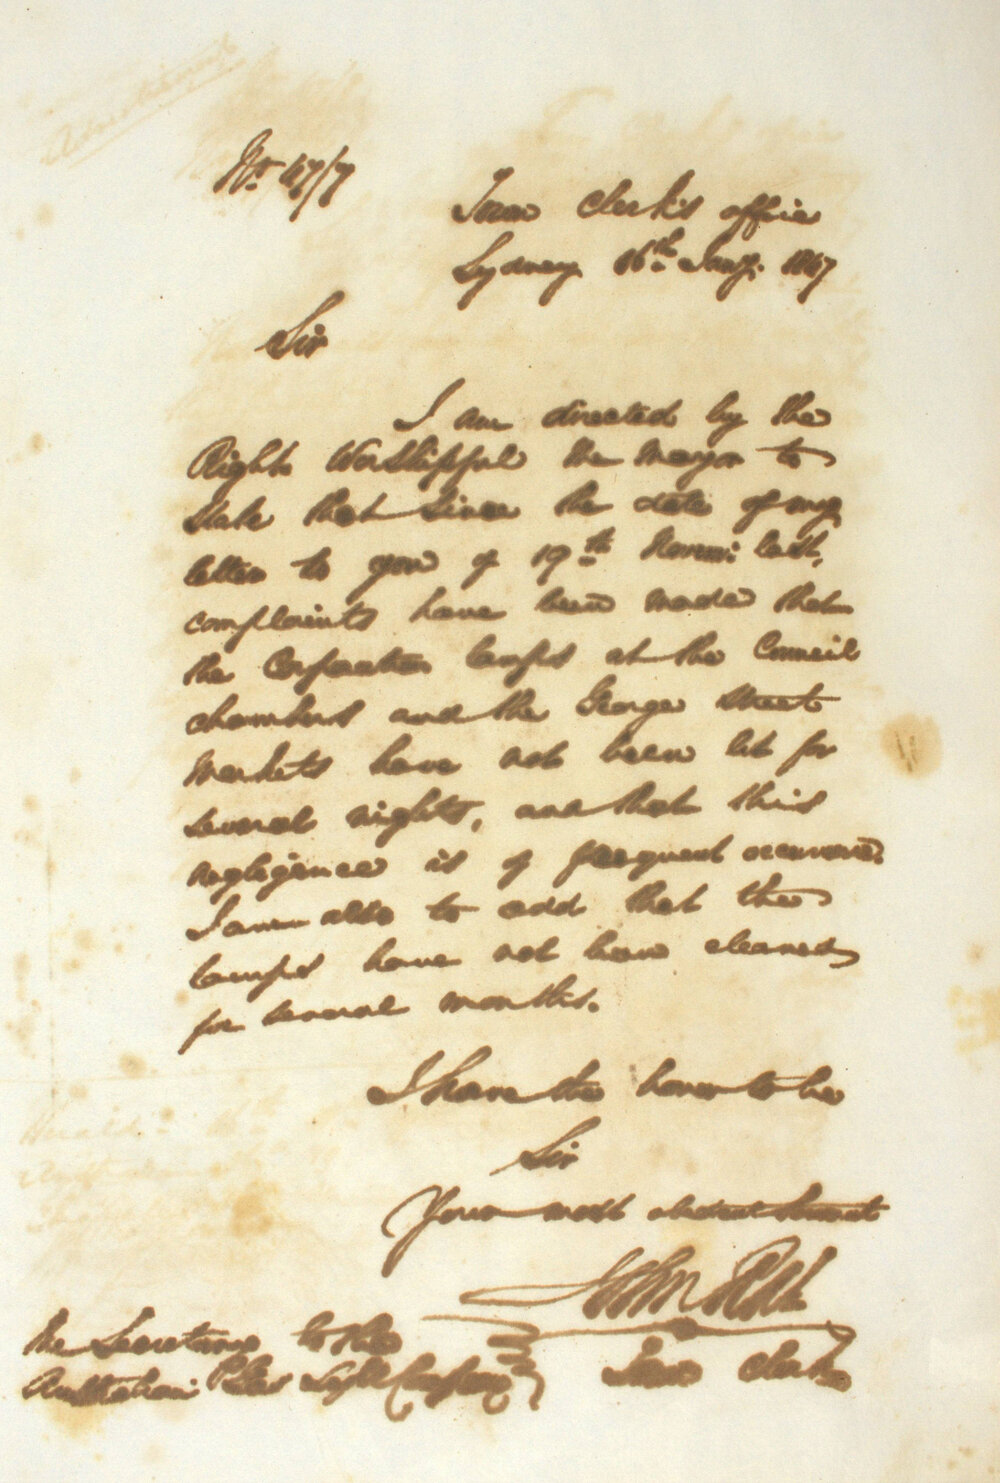 No. 47/7
Town Clerk's office
Sydney 16th Jany. 1847
Sir
I am directed by the
Right Worshipful the Mayor to
state that since the date of my
letter to you of 19th Novemr: last,
complaints have been made that
the Corporation lamps at the Council
chambers and the George Street
Markets have not been lit for
several nights, and that this
negligence is of frequent occurrence.
I am also to add that the
lamps have not been cleaned
for several months.
I have the honor to be
Sir
Your most obedient Servant
John
Town Clerk
The Secretary to the
Australian Gas Light Company